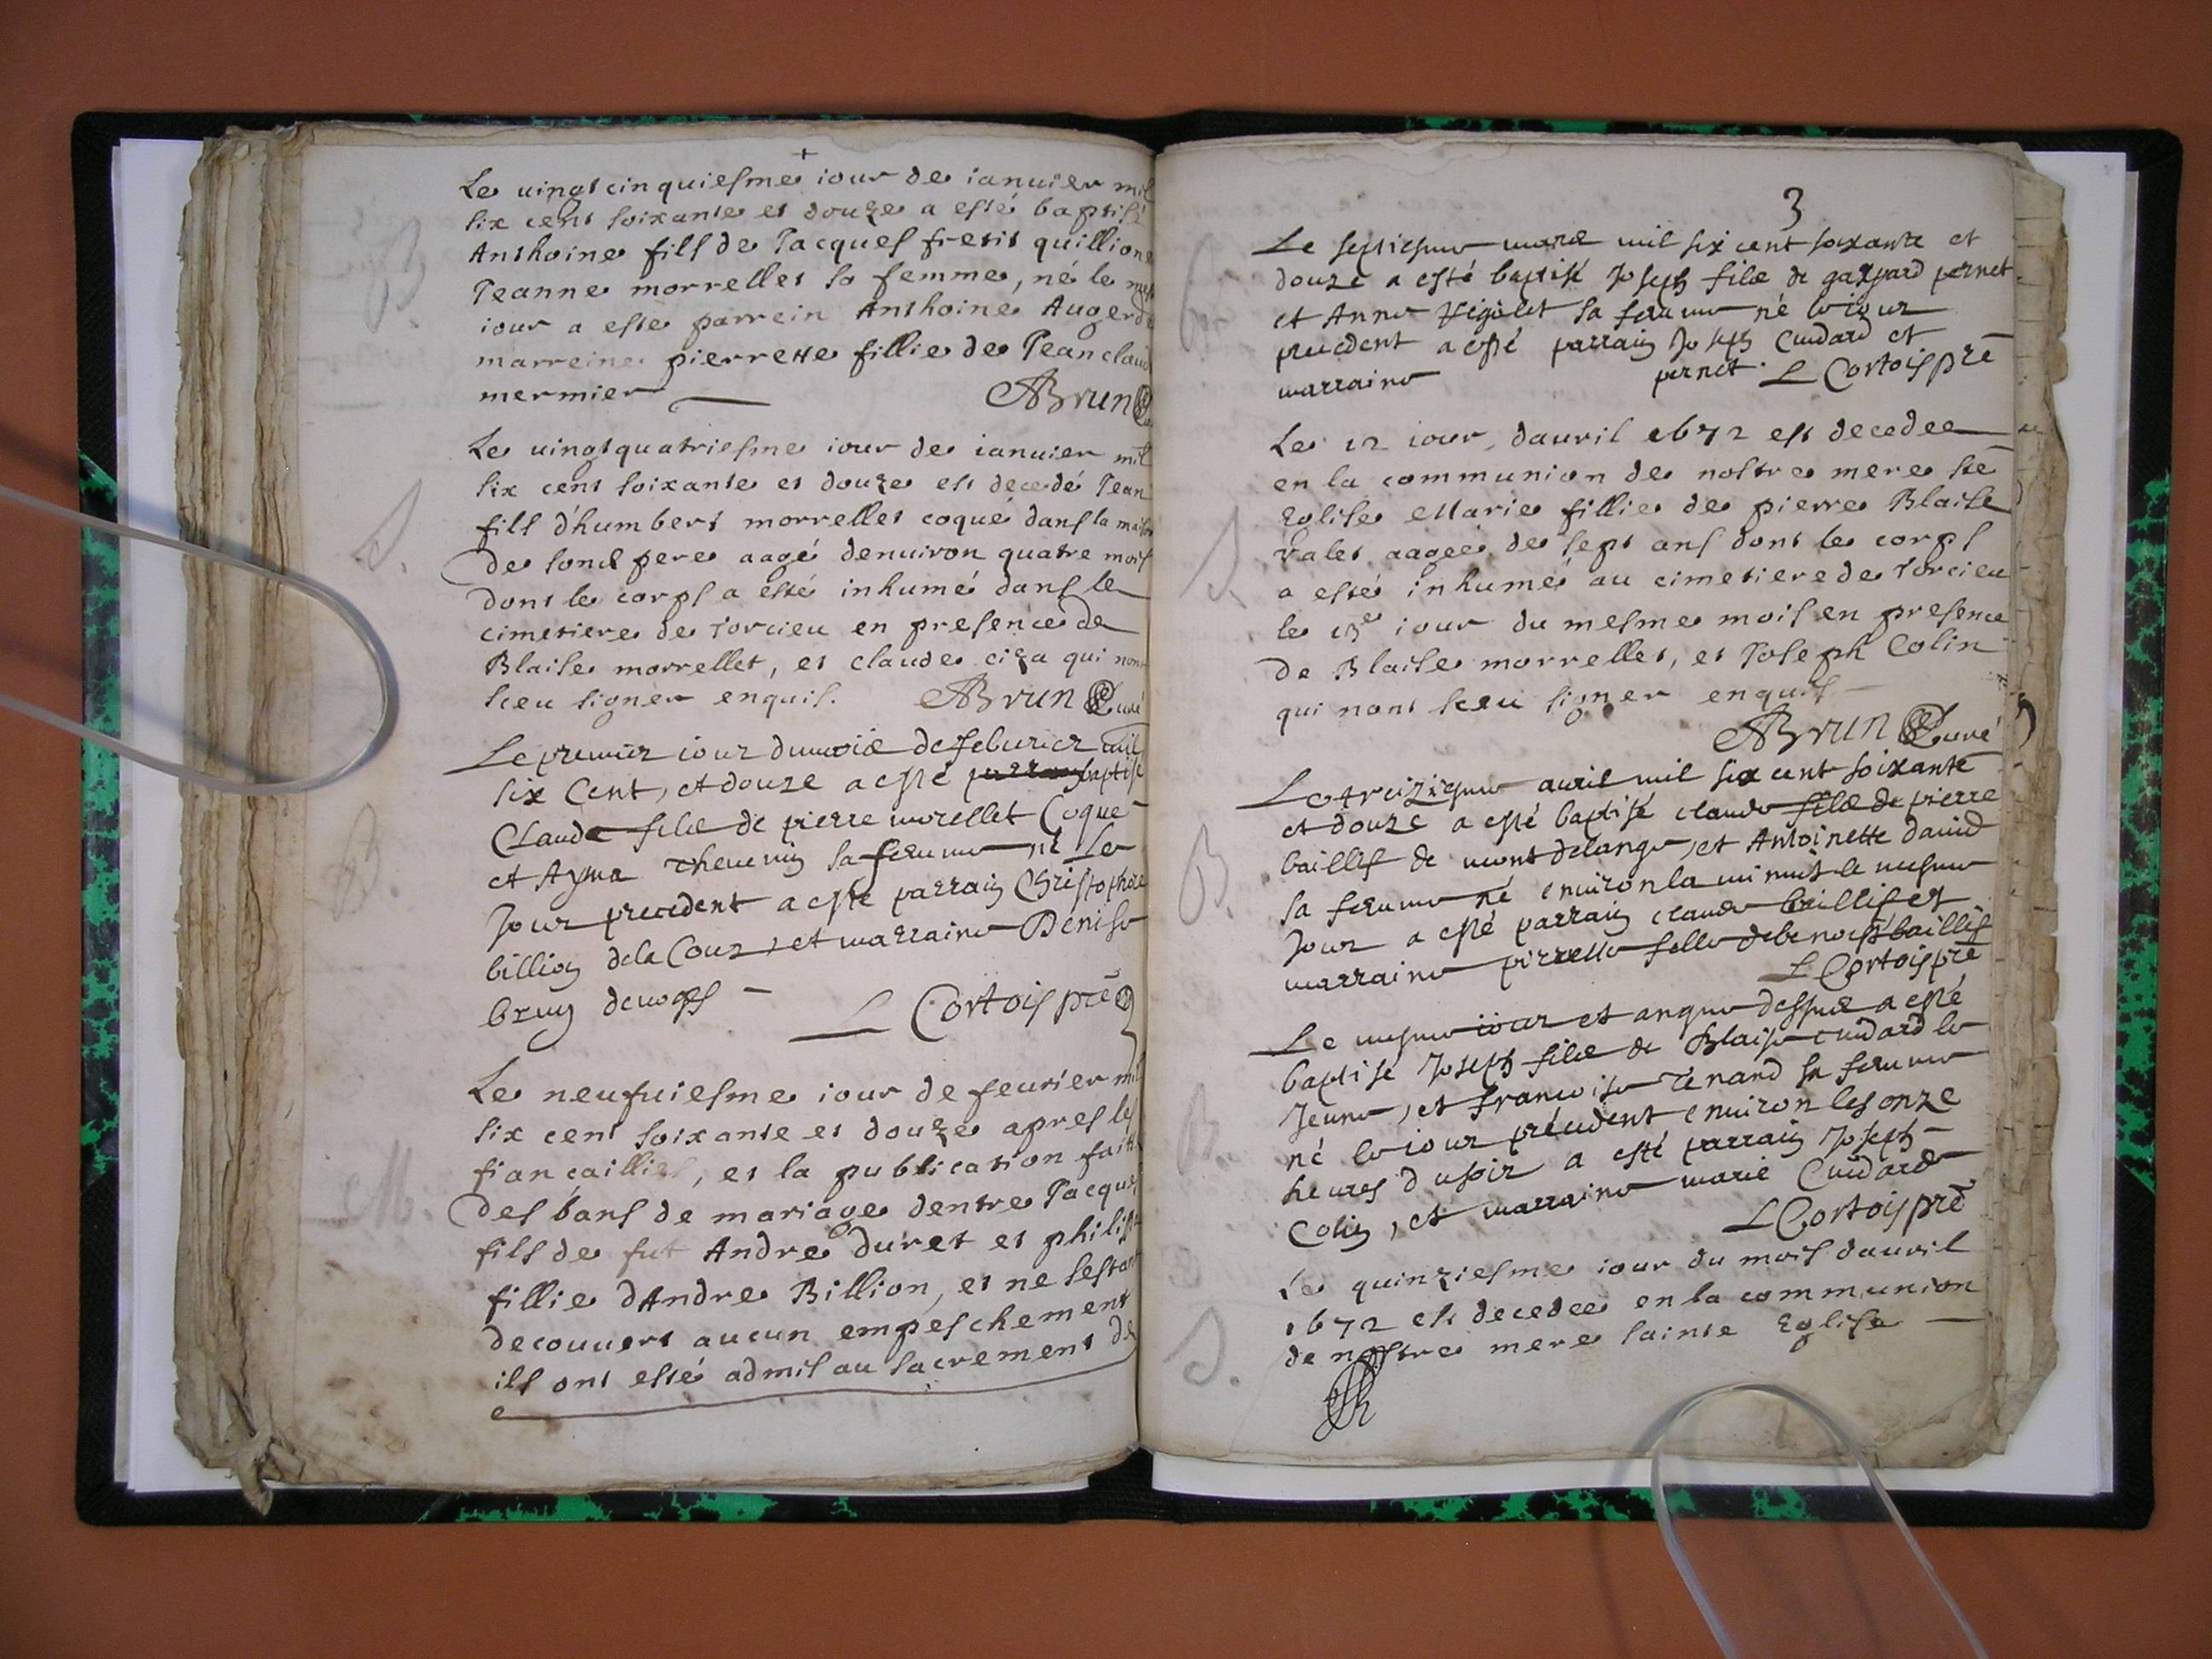 +
Le vingtcinquiesme iour de ianuier mil
six cent soixante et douze a esté baptisé
B.
Anthoine fils de Jacques fretit quillion
Jeanne morrellet sa femme, né le
iour a esté parrein Anthoine Auger
marreine pierrette fillie de Jean claud
mermier ABrun
Le vingtquatriesme iour de ianuier mil
six cent soixante et douze est decedé Jean
S.
fils d'humbert morrellet coque dans la maison
de sond pere aagé denuiron quatre mois
dont le corps a esté inhumé dans le
cimetiere de Torcieu en presence de
Blaise morrellet, et claude ciza qui nont
sceu signer enquis. ABrun Curé
Le premier iour du mois de feburier mil
six Cent, et douze a esté baptisé
B.
Claude filz de pierre morellet Coque
et Ayma theuenin sa femme né Le
Jour precedent a esté parrain Christophle
billion dela Cour, et marraine Denise
brun de L Cortois pre
Le neufuiesme iour de feurier mil
six cent soixante et douze apres les
fiancaillies, et la publication faitte
M.
des bans de mariage dentre Jacques
fils de fut Andre Duret et philip
fillie dAndre Billion, et ne sestant
decouuert aucun empeschement
ils ont esté admis au sacrement de
3
Le septiesme marz mil six cent soixante et
douze a esté baptisé Joseph filz de gaspard pernet
B.
et Anne Vigolet sa femme né le iour
precedent a esté parrain Joseph Cuidard et
marraine pernet. L Cortois pre
Le 12 iour dauril 1672 est decedee
en la communion de nostre mere ste
Eglise Marie fillie de pierre Blaise
S.
valet aagee de sept ans dont le corps
a esté inhumé au cimetiere de Torcieu
le 13e iour du mesme mois en presence
de Blaise morrellet, et Joseph Colin
qui nont sceu signer enquis
ABrun Curé
Le treiziesme auril mil six cent soixante
et douze a esté baptisé claude filz de pierre
B.
baillif de mont delange, et Antoinette dauid
sa femme né enuiron la minuit le mesme
Jour a esté parrain claude baillif et
marraine pierrette fille de benoist baillif
L Cortois pre
Le mesme iour et an que dessus a esté
baptisé Joseph filz de Blaise cuidard le
Jeune, et francoise Tenand sa femme
B.
né le iour précedent enuiron les onze
heures du soir a esté parrain Joseph
Colin, et marraine marie Cuidard
L Cortois pre
Le quinziesme iour du mois dauril
1672 est decedee en la communion
S.
de nostre mere sainte Eglise